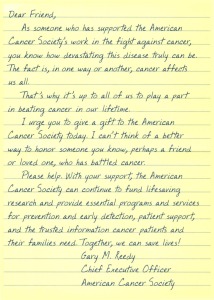 Dear Friend,
As someone who has supported the American
Cancer Society's work in the fight against cancer,
you know how devastating this disease truly can be.
The fact is, in one way or another, cancer affects
us all.
That's why it's up to all of us to play a part
in beating cancer in our lifetime.
I urge you to give a gift to the American
Cancer Society today. I can't think of a better
way to honor someone you know, perhaps a friend
or loved one, who has battled cancer.
Please help. With your support, the American
Cancer Society can continue to fund lifesaving
research and provide essential programs and services
for prevention and early detection, patient support,
and the trusted information cancer patients and
their families need. Together, we can save lives!
Gary M. Reedy
Chief Executive Officer
American Cancer Society